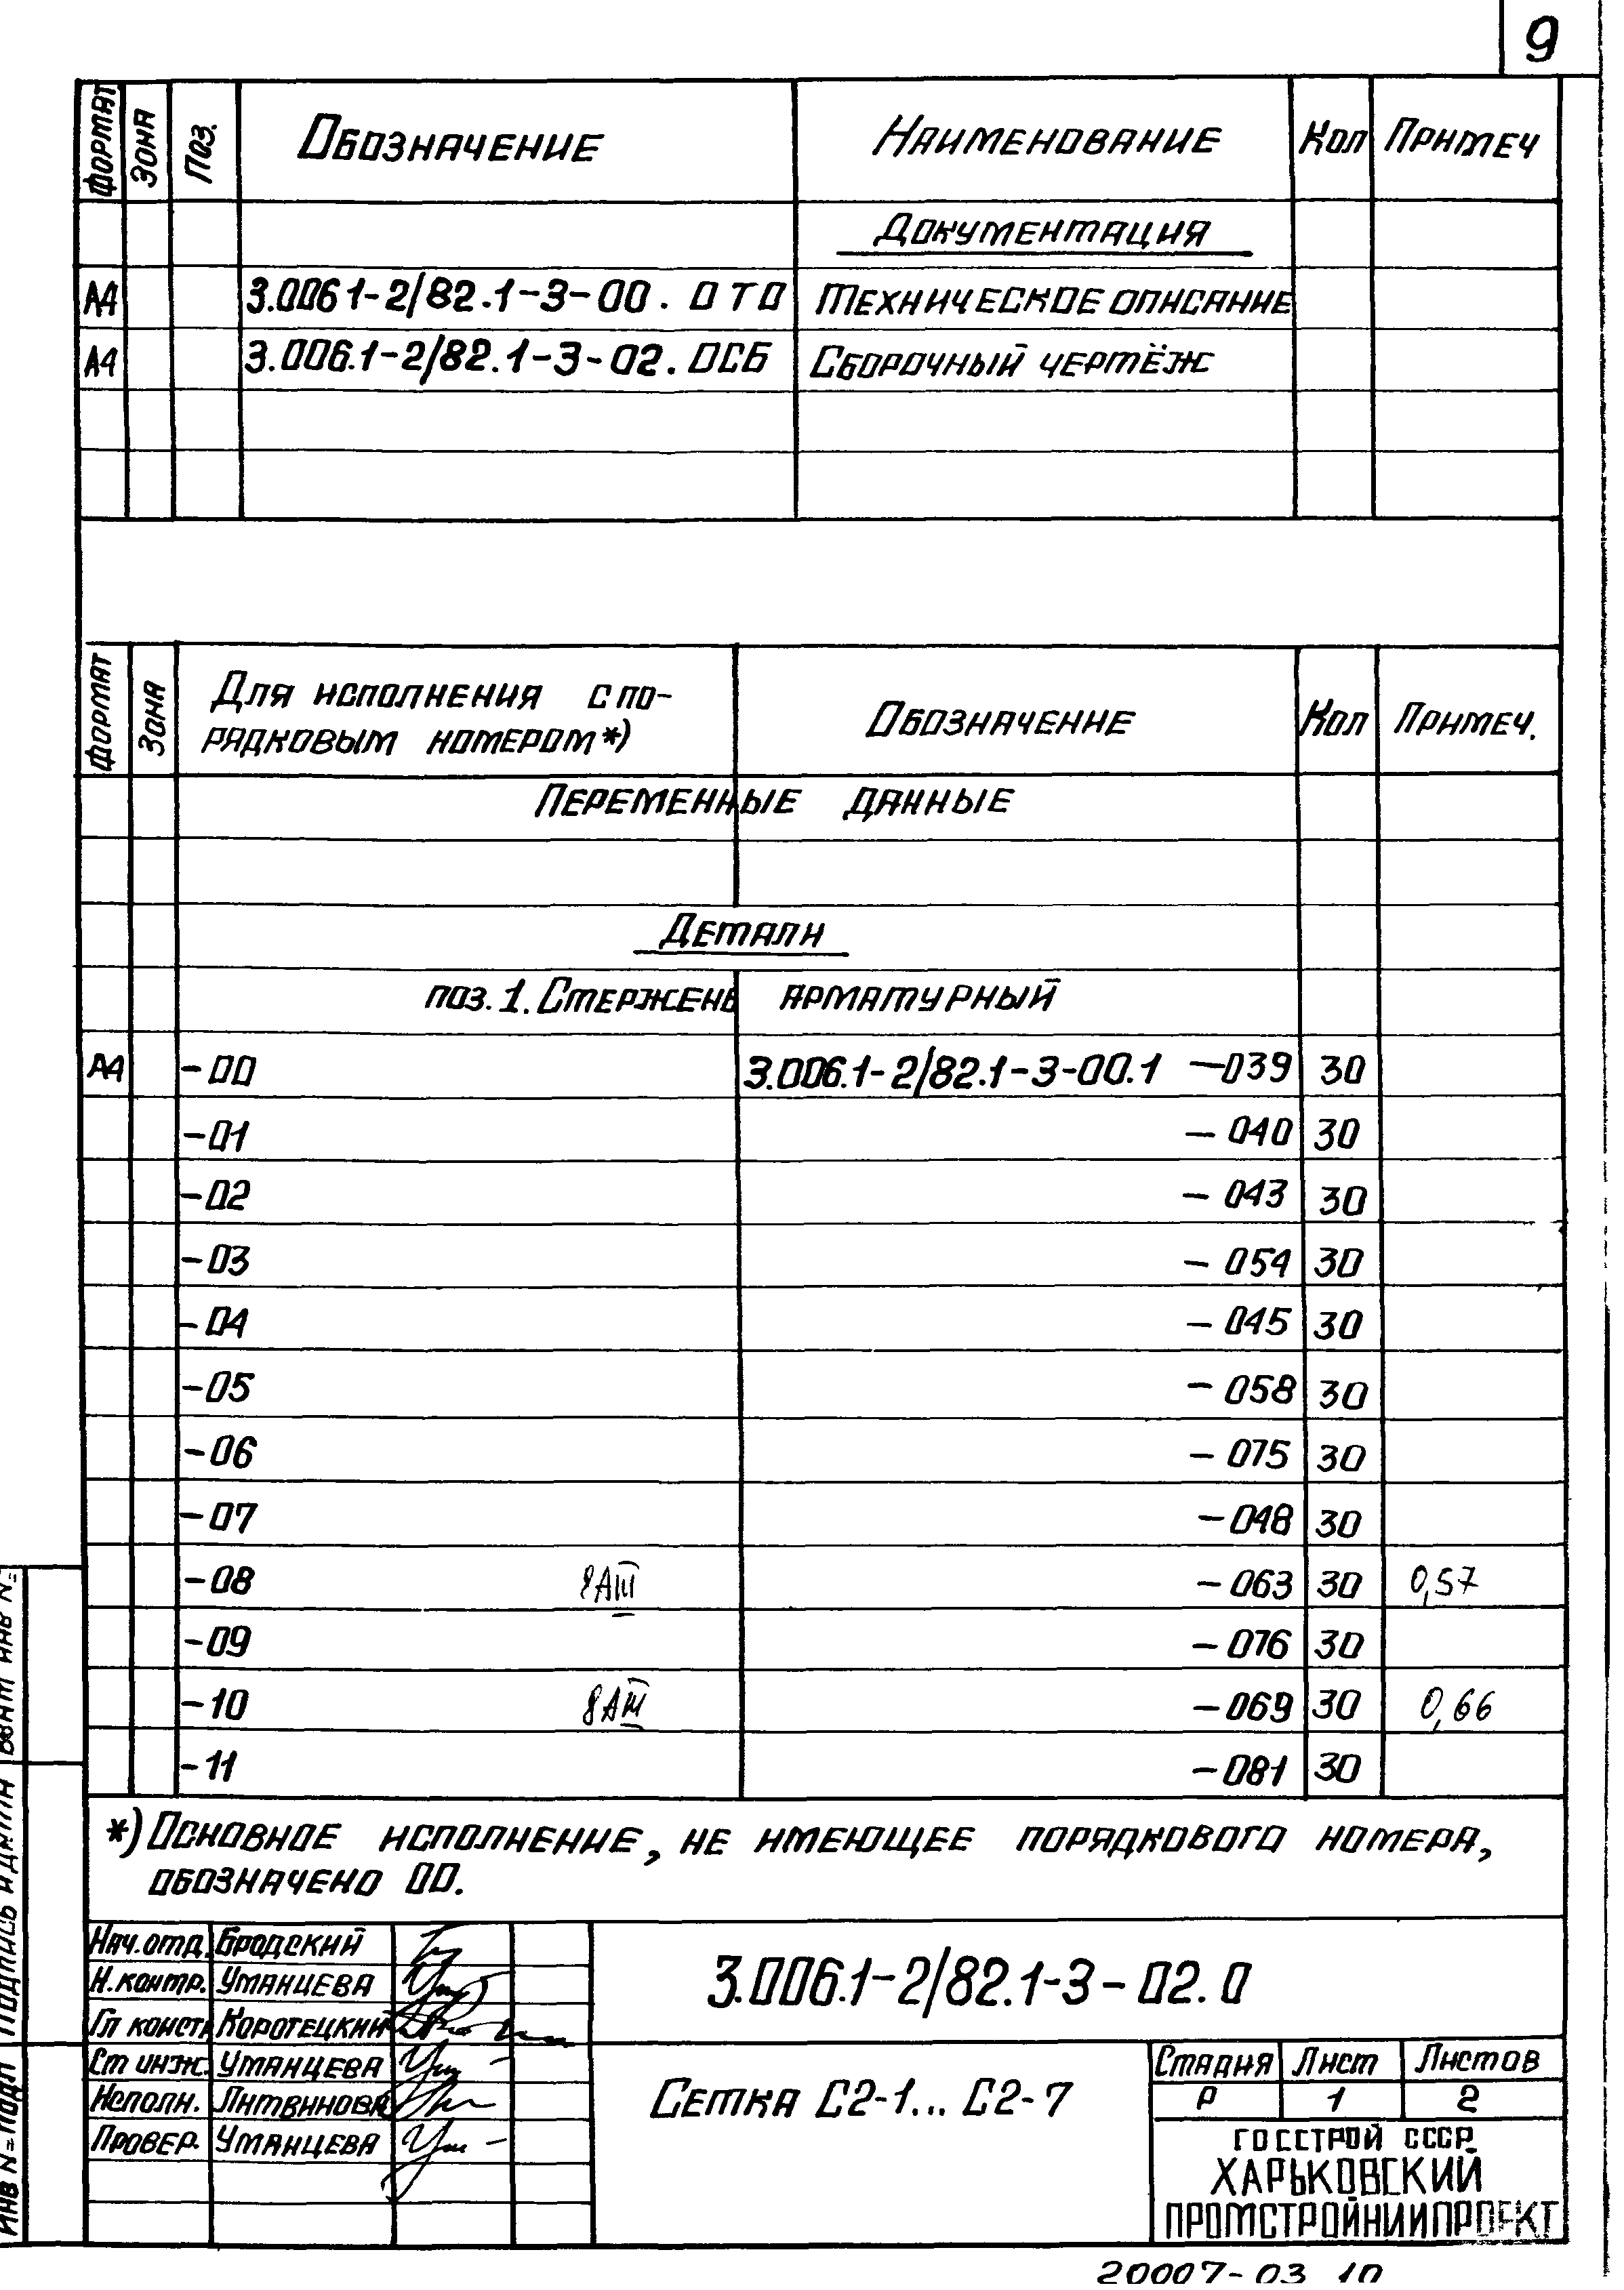 9
Формат Зона Поз. Обозначение Наименование Кол Примеч
Документация
А4 3.006 1-2/82.1-3-00. 0 ТО Техническое описание
А4 3.006.1-2/82.1-3-02. 0СБ Сборочный чертёж
Формат Зона Для исполнения с по- Обозначение Кол Примеч.
рядковым номером*)
Переменные данные
Детали
поз. 1. Стержень арматурный
А4 -00 3.006.1-2/82.1-3-00.1 -039 30
-01 -040 30
-02 -043 30
-03 -054 30
-04 -045 30
-05 -058 30
-06 -075 30
-07 -048 30
-08 8АIII -063 30 0,57
-09 -076 30
-10 8АIII -069 30 0,66
-11 -081 30
*) Основное исполнение, не имеющее порядкового номера,
обозначено 00.
Нач.отд. Бродский
Н.контр. Уманцева
Гл констр Коротецкий
Ст инж. Уманцева
Исполн. Литвинова
Провер. Уманцева
3.006.1-2/82.1-3-02.0
Сетка С2-1... С2-7
Стадия Лист Листов
Р 1 2
ГОССТРОЙ СССР
ХАРЬКОВСКИЙ
ПРОМСТРОЙНИИПРОЕКТ
Инв № подл Подпись и дата Взам инв №
20007-03 10